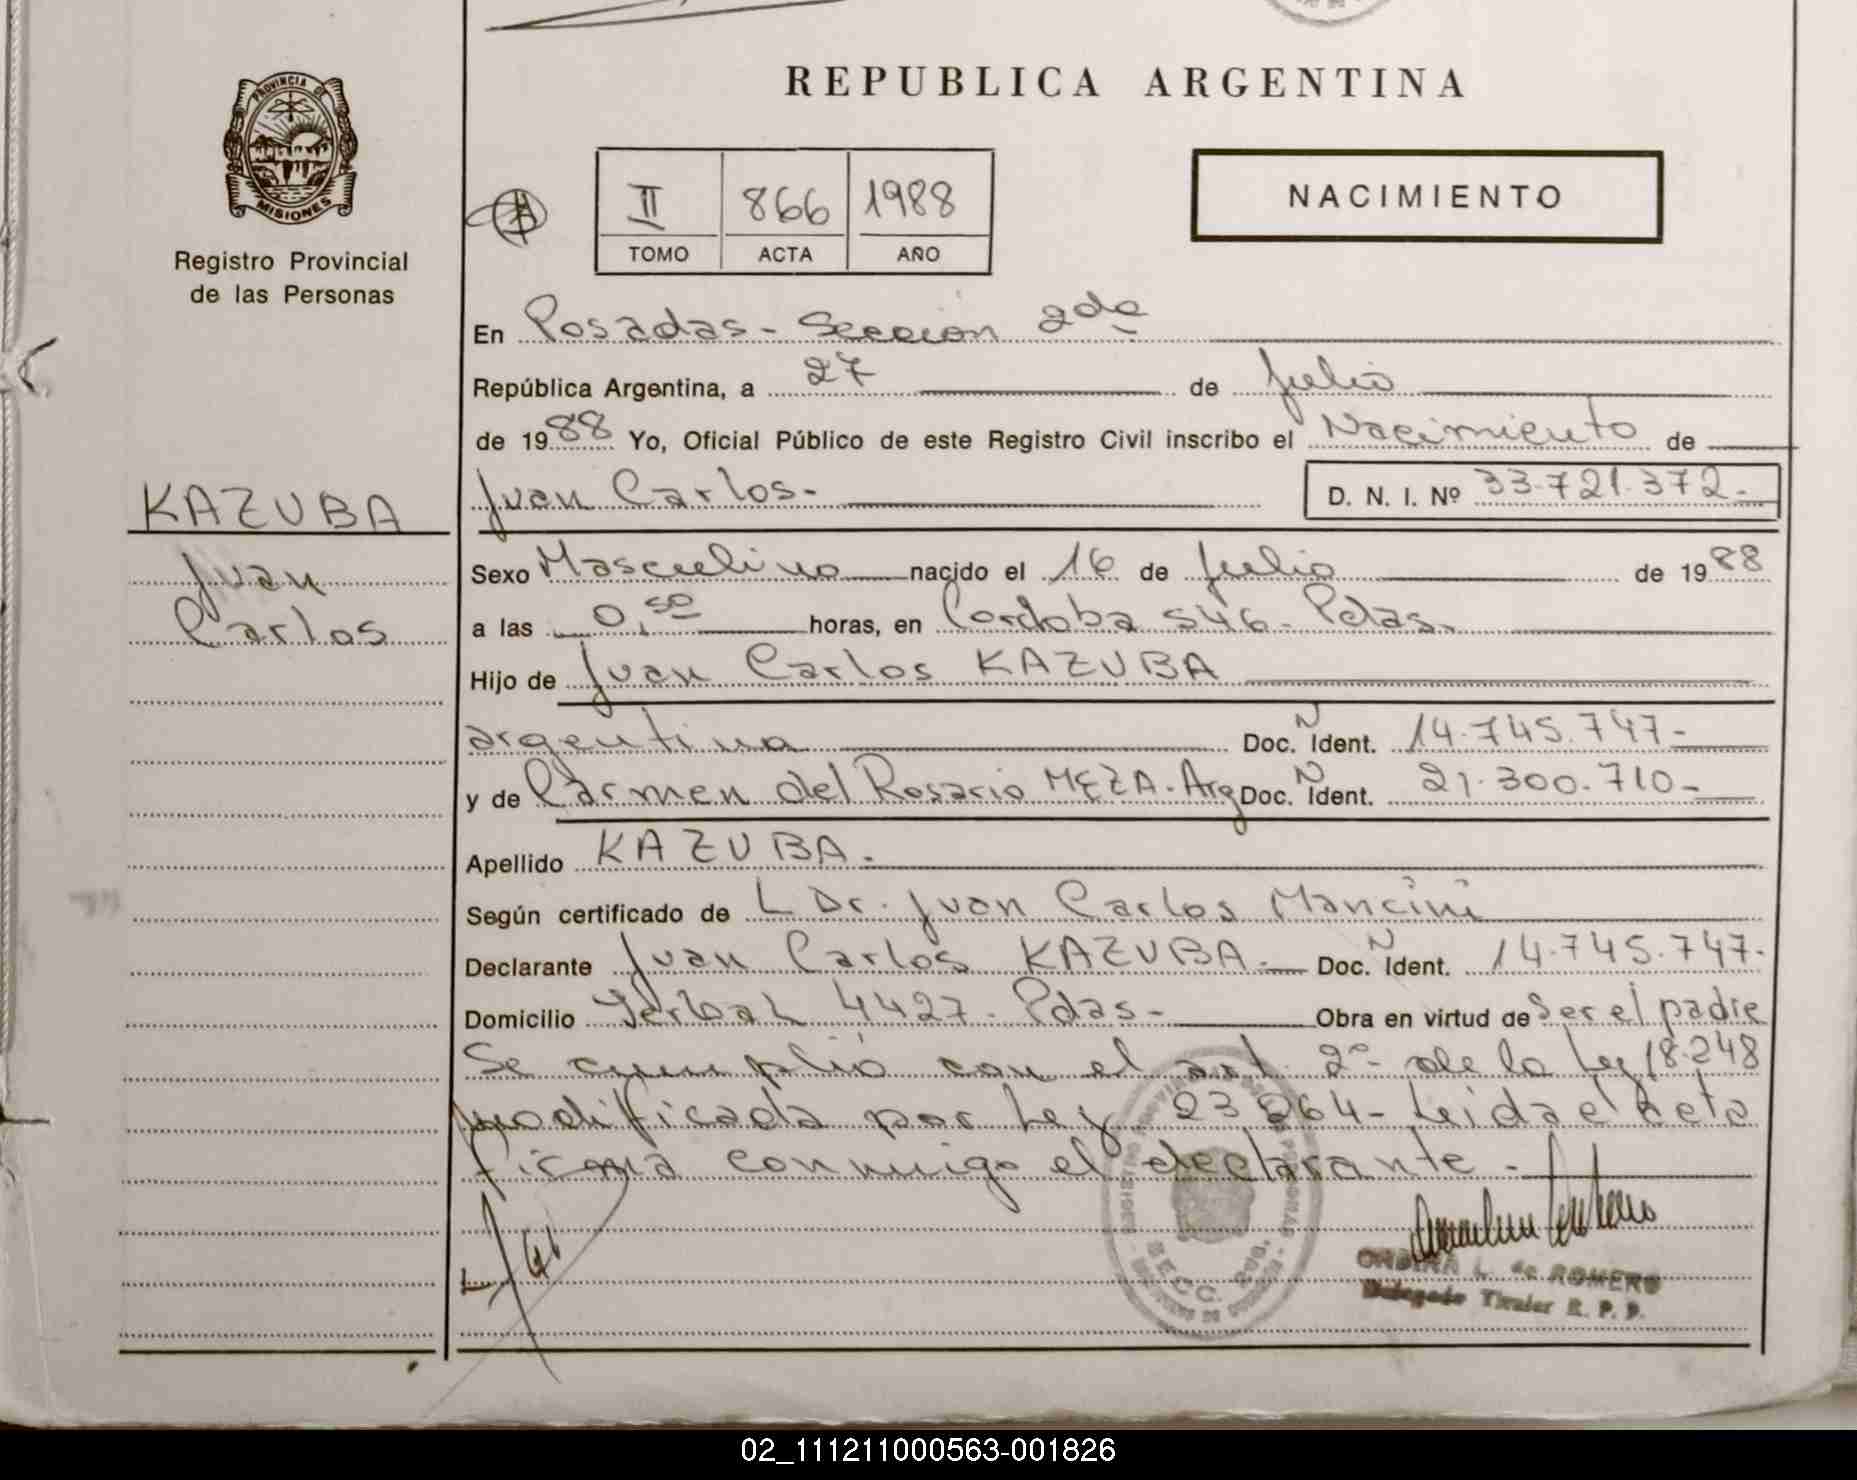 PROVINCIA DE
MISIONES
Registro Provincial
de las Personas
REPUBLICA ARGENTINA
II 866 1988
TOMO ACTA AÑO
NACIMIENTO
En Posadas - Sección 2da
República Argentina, a 27 de Julio
de 1988 Yo, Oficial Público de este Registro Civil inscribo el Nacimiento de
KAZUBA
Juan Carlos.- D. N. I. Nº 33.721.372.-
Juan
Carlos
Sexo Masculino nacido el 16 de Julio de 1988
a las 0,50 horas, en Cordoba 546 - Pdas.
Hijo de Juan Carlos KAZUBA
argentina Doc. N Ident. 14.745.747-
y de Carmen del Rosario MEZA - Arg Doc. N Ident. 21.300.710-
Apellido KAZUBA.
Según certificado de L Dr. Juan Carlos Mancini
Declarante Juan Carlos KAZUBA.- Doc. N Ident. 14.745.747.
Domicilio Yerbal 4427 - Pdas - Obra en virtud de Ser el padre
Se cumplió con el art. 2º de la Ley 18.248
modificada por Ley 23264 - Leida el Acta
firma conmigo el declarante.-
SECC. 2da.
L. de ROMERO
Delegado Titular R. P. P.
02_111211000563-001826